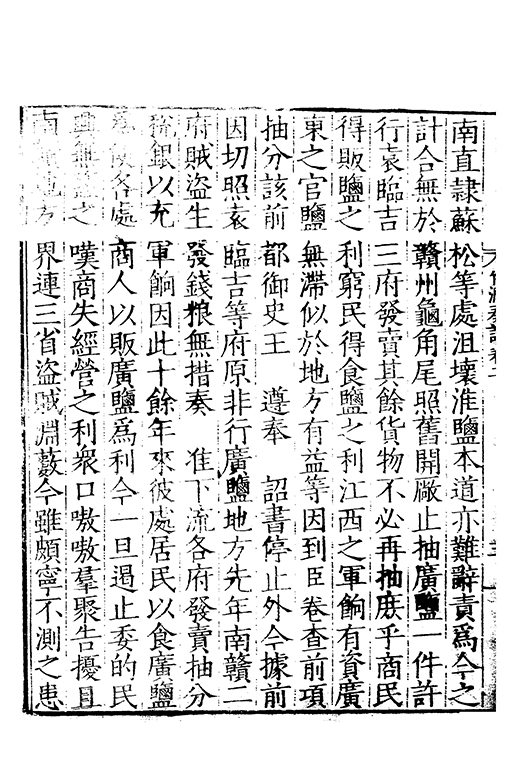 南直隷蘇松等處沮壞淮鹽本道亦難辭責爲今之
計合無於贛州龜角尾照舊開厰止抽廣鹽一件許
行袁臨吉三府發賣其餘貨物不必再抽庻乎商民
得販鹽之利窮民得食鹽之利江西之軍餉有資廣
東之官鹽無滯似於地方有益等因到臣卷查前項
抽分該前都御史王　遵奉　詔書停止外今據前
因切照袁臨吉等府原非行廣鹽地方先年南贛二
府賊盗生發錢粮無措奏　准下流各府發賣抽分
稅銀以充軍餉因此十餘年來彼處居民以食廣鹽
爲便各處商人以販廣鹽爲利今一旦遏止委的民
興無鹽之嘆商失經營之利衆口嗷嗷羣聚告擾且
南贛地方界連三省盜賊淵藪今雖頗寧不測之患